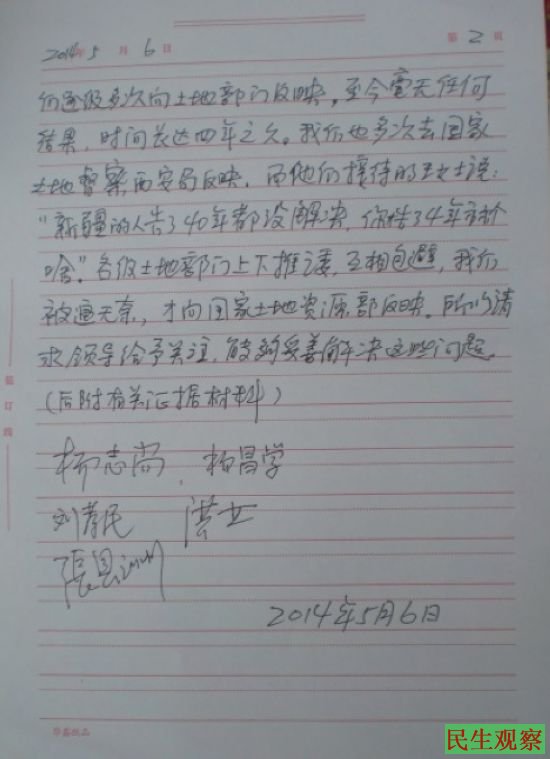 2014年5月6日 第2页
们逐级多次向土地部门反映,至今毫无任何
结果,时间长达四年之久。我们也多次去国家
土地督察西安局反映,而他们接待的王女士说:
“新疆的人告了40年都没解决,你告了4年
啥”。各级土地部门上下推诿,互相包避,我们
被逼无奈,才向国家土地资源部反映。所以请
求领导给予关注,能够妥善解决这些问题。
(后附有关证据材料)
杨志尚、杨昌学
刘孝民 洪
張
2014年5月6日
装订线
华鑫纸品
民生观察